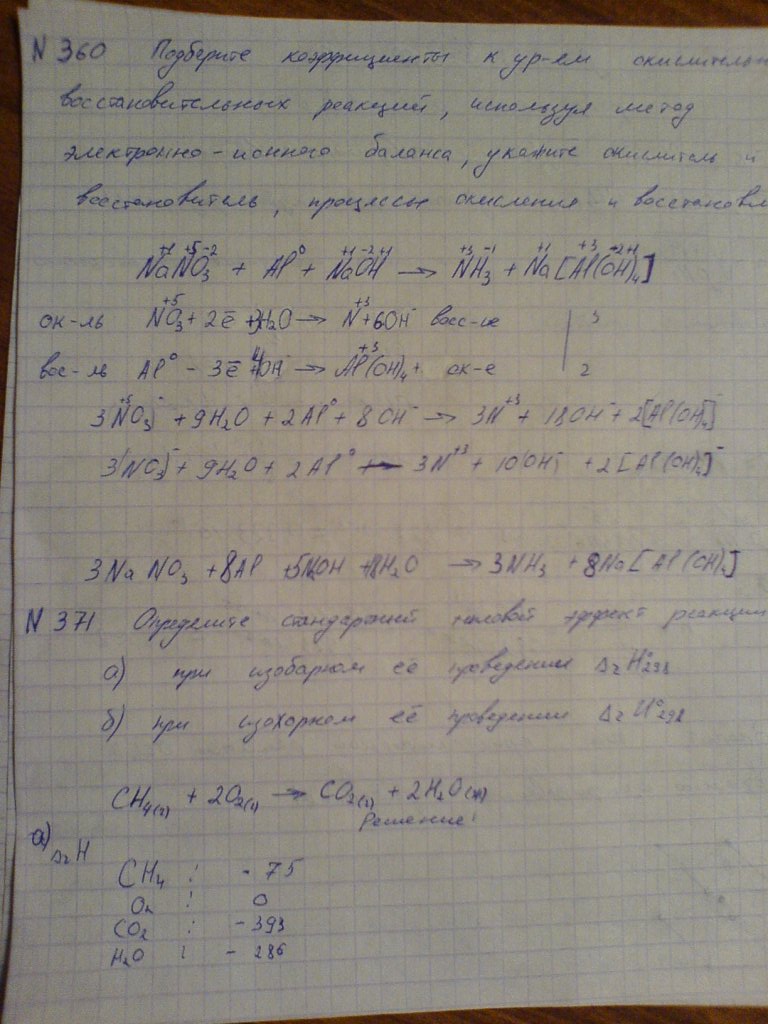 N 360 Подберите коэффициенты к ур-ем окислительно
восстановительных реакций, используя метод
электронно-ионного баланса, укажите окислитель и
восстановитель, процессы окисления и восстановл
+1 +5 -2 0 +1 -2 +1 +3 -1 +1 +3 -2 +1
NaNO3 + Al + NaOH → NH3 + Na[Al(OH)4]
ок-ль NO3 + 2ē + 3H2O → N + 6OH⁻ восс-ие 3
вос-ль Al⁰ - 3ē + 4OH⁻ → Al(OH)4 ок-е 2
3NO3⁻ + 9H2O + 2Al⁰ + 8OH⁻ → 3N⁺³ + 18OH⁻ + 2[Al(OH)4]⁻
3NO3⁻ + 9H2O + 2Al⁰ → 3N⁺³ + 10OH⁻ + 2[Al(OH)4]⁻
3NaNO3 + 8Al + 5NaOH + 18H2O → 3NH3 + 8Na[Al(OH)4]
N 371 Определите стандартный тепловой эффект реакции
а) при изобарном её проведении ΔrH°298
б) при изохорном её проведении ΔrU°298
CH4(г) + 2O2(г) → CO2(г) + 2H2O(ж)
Решение:
а) ΔrH
CH4 : - 75
O2 : 0
CO2 : - 393
H2O : - 286